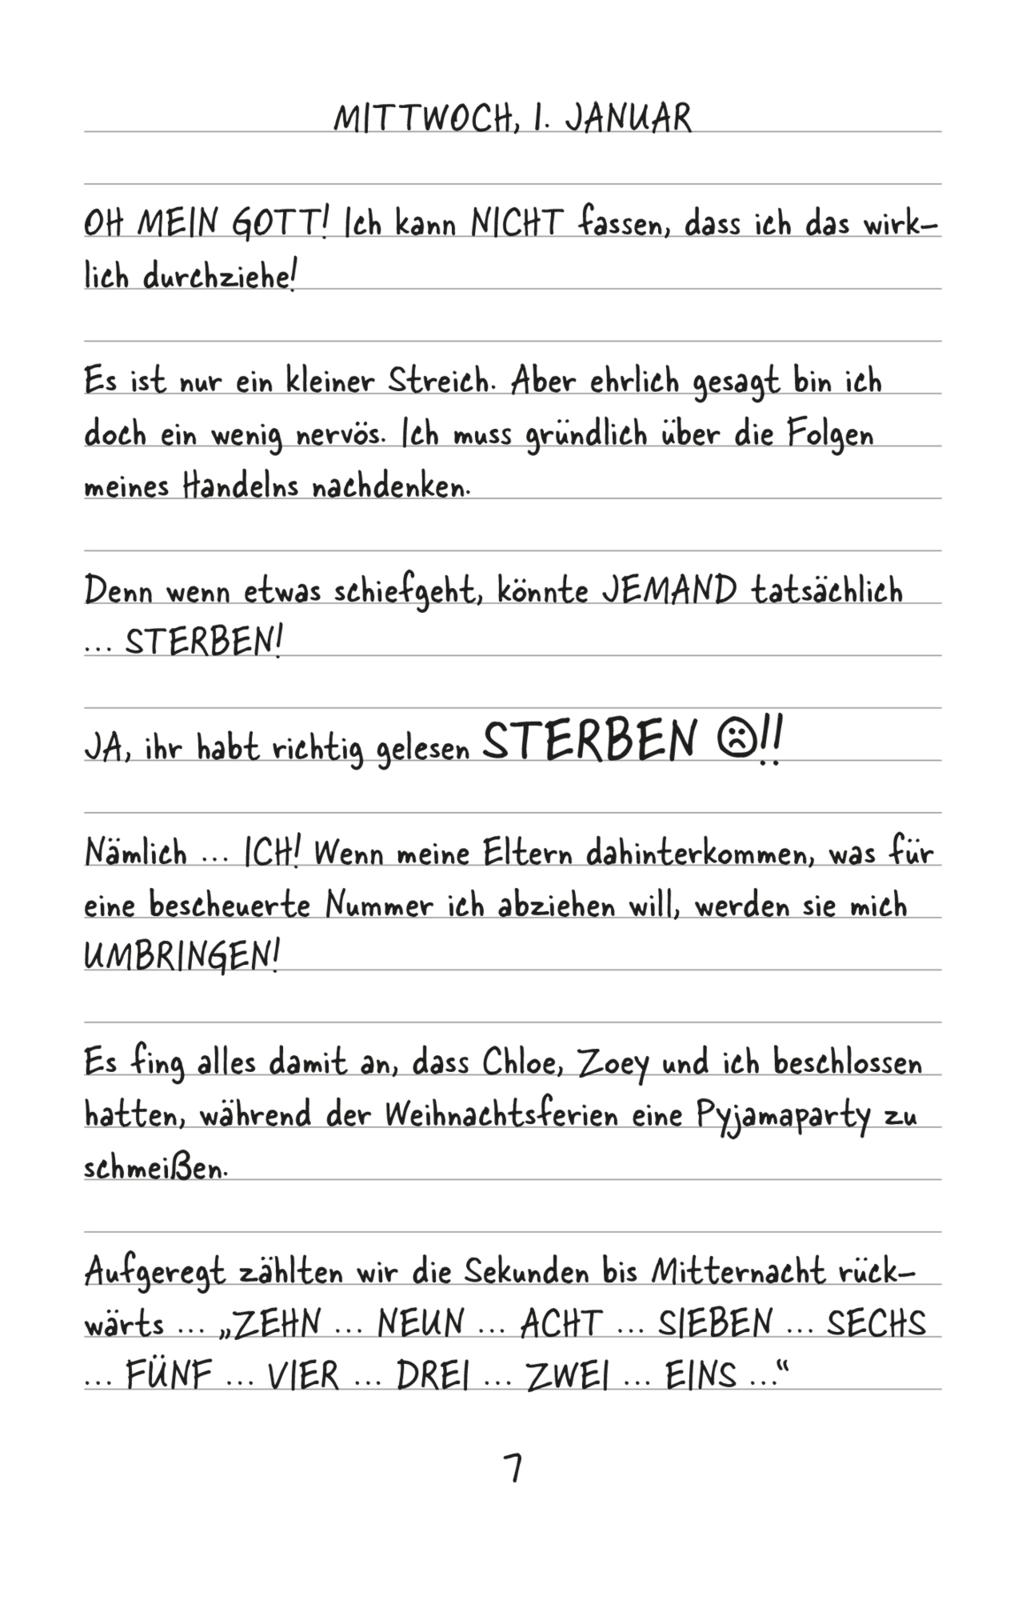 MITTWOCH, 1. JANUAR
OH MEIN GOTT! Ich kann NICHT fassen, dass ich das wirk-
lich durchziehe!
Es ist nur ein kleiner Streich. Aber ehrlich gesagt bin ich
doch ein wenig nervös. Ich muss gründlich über die Folgen
meines Handelns nachdenken.
Denn wenn etwas schiefgeht, könnte JEMAND tatsächlich
... STERBEN!
JA, ihr habt richtig gelesen STERBEN ☹!!
Nämlich ... ICH! Wenn meine Eltern dahinterkommen, was für
eine bescheuerte Nummer ich abziehen will, werden sie mich
UMBRINGEN!
Es fing alles damit an, dass Chloe, Zoey und ich beschlossen
hatten, während der Weihnachtsferien eine Pyjamaparty zu
schmeißen.
Aufgeregt zählten wir die Sekunden bis Mitternacht rück-
wärts ... „ZEHN ... NEUN ... ACHT ... SIEBEN ... SECHS
... FÜNF ... VIER ... DREI ... ZWEI ... EINS ...“
7